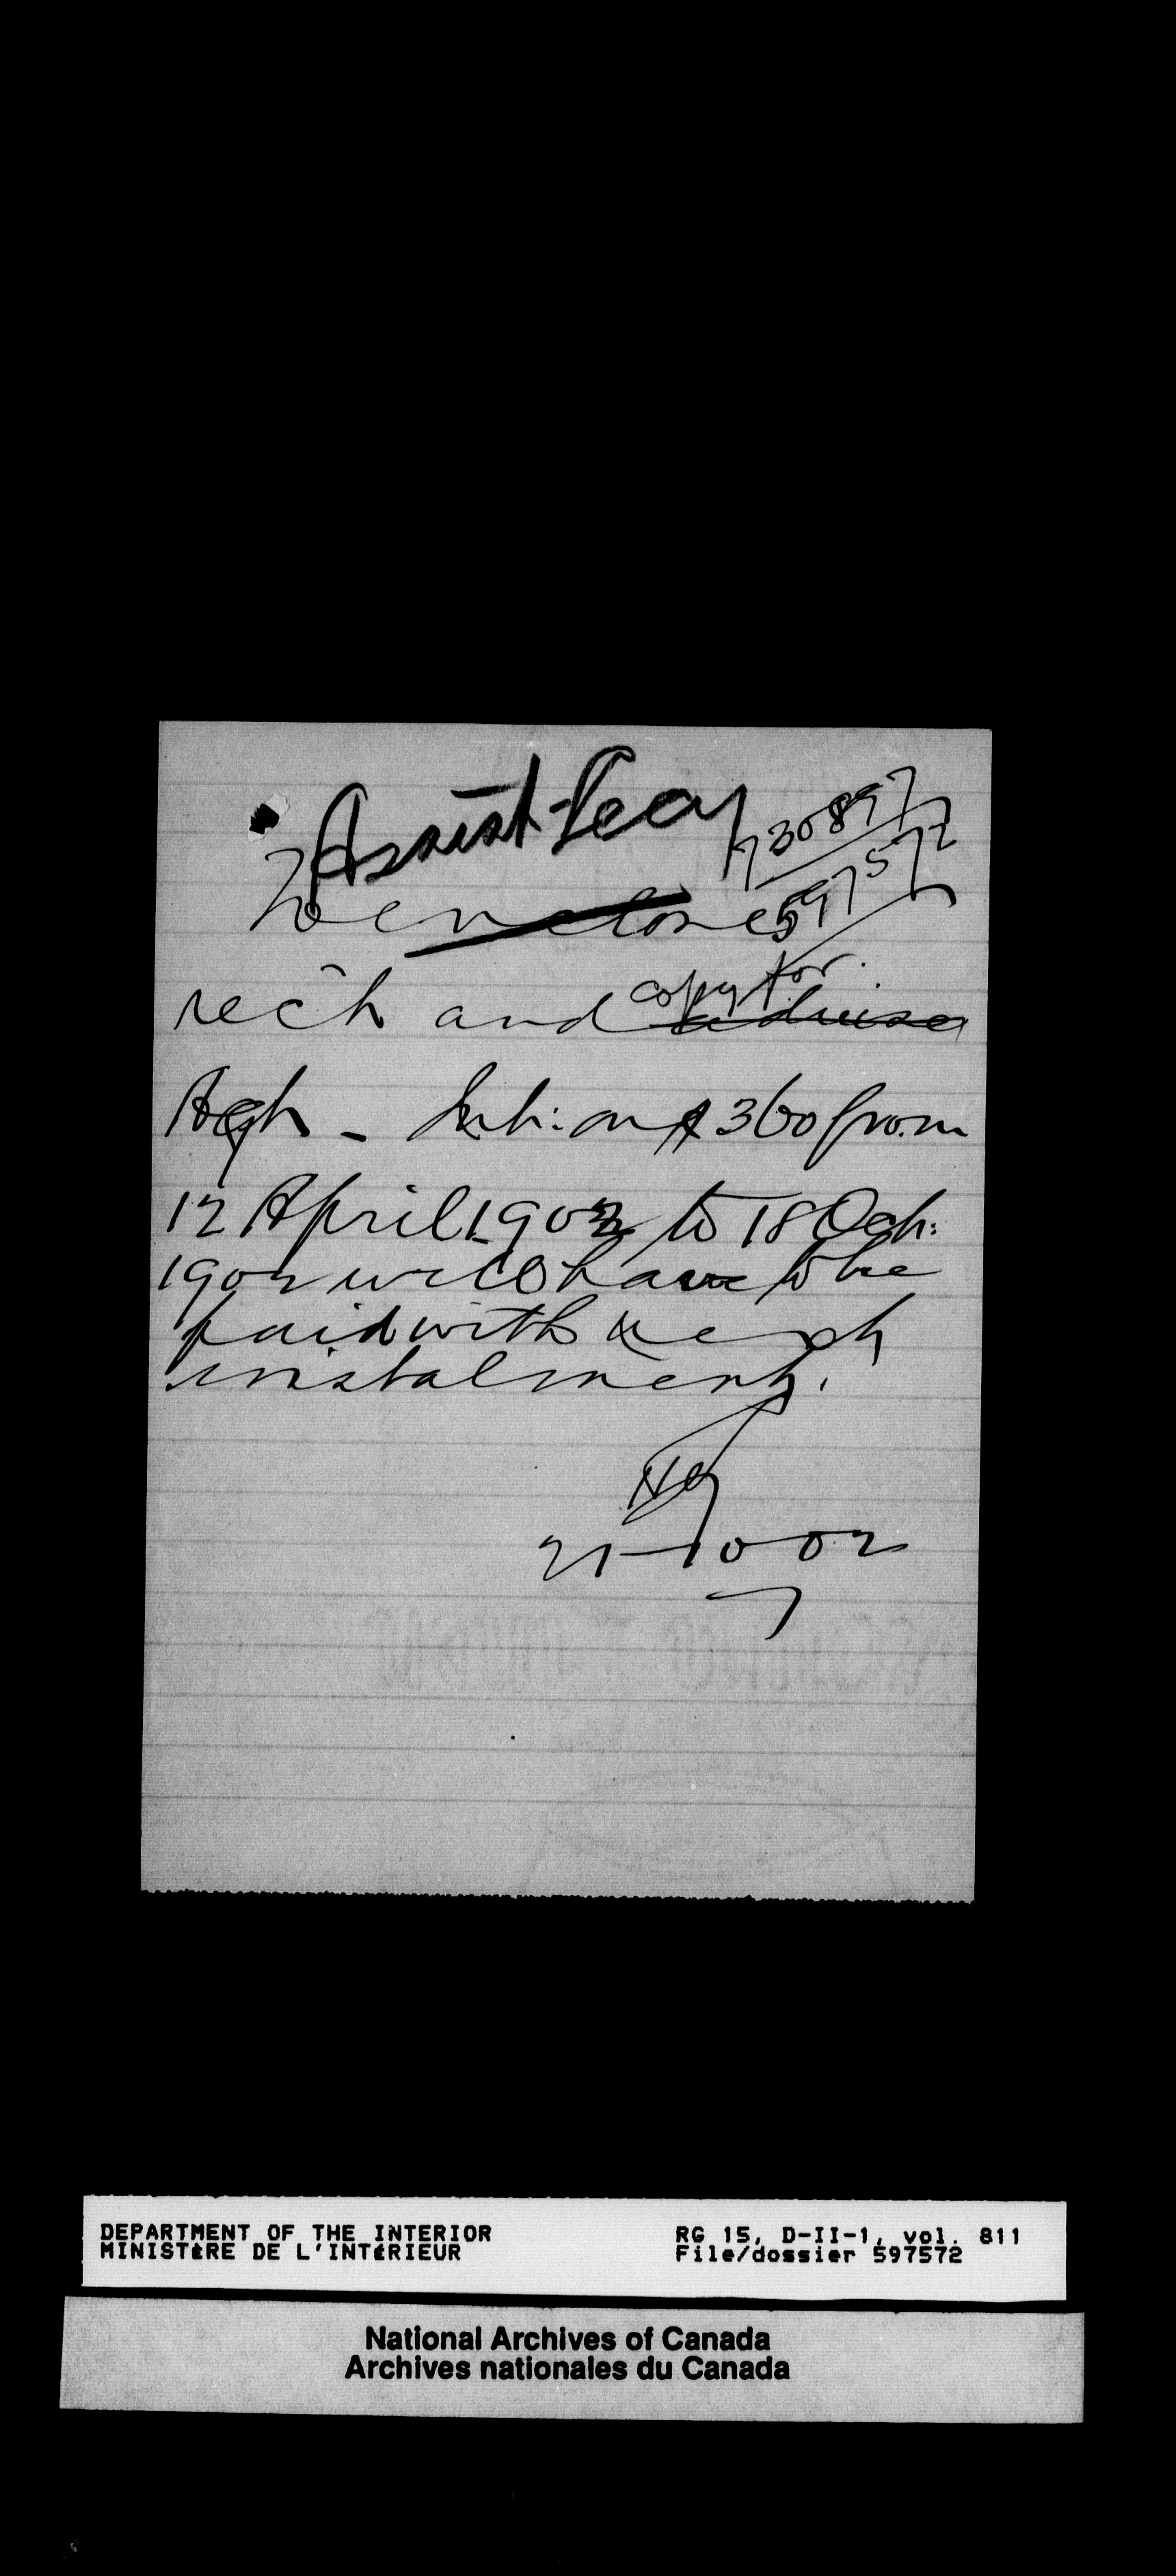 Assist-Secy
730897
597572
To enclose
rec't and copy for advise
Agt - Int: on $360 from
12 April 1902 to 18 Oct:
1902 will have to be
paid with next
instalment.
21-10-02
DEPARTMENT OF THE INTERIOR
MINISTÈRE DE L'INTÉRIEUR
RG 15, D-II-1, vol. 811
File/dossier 597572
National Archives of Canada
Archives nationales du Canada